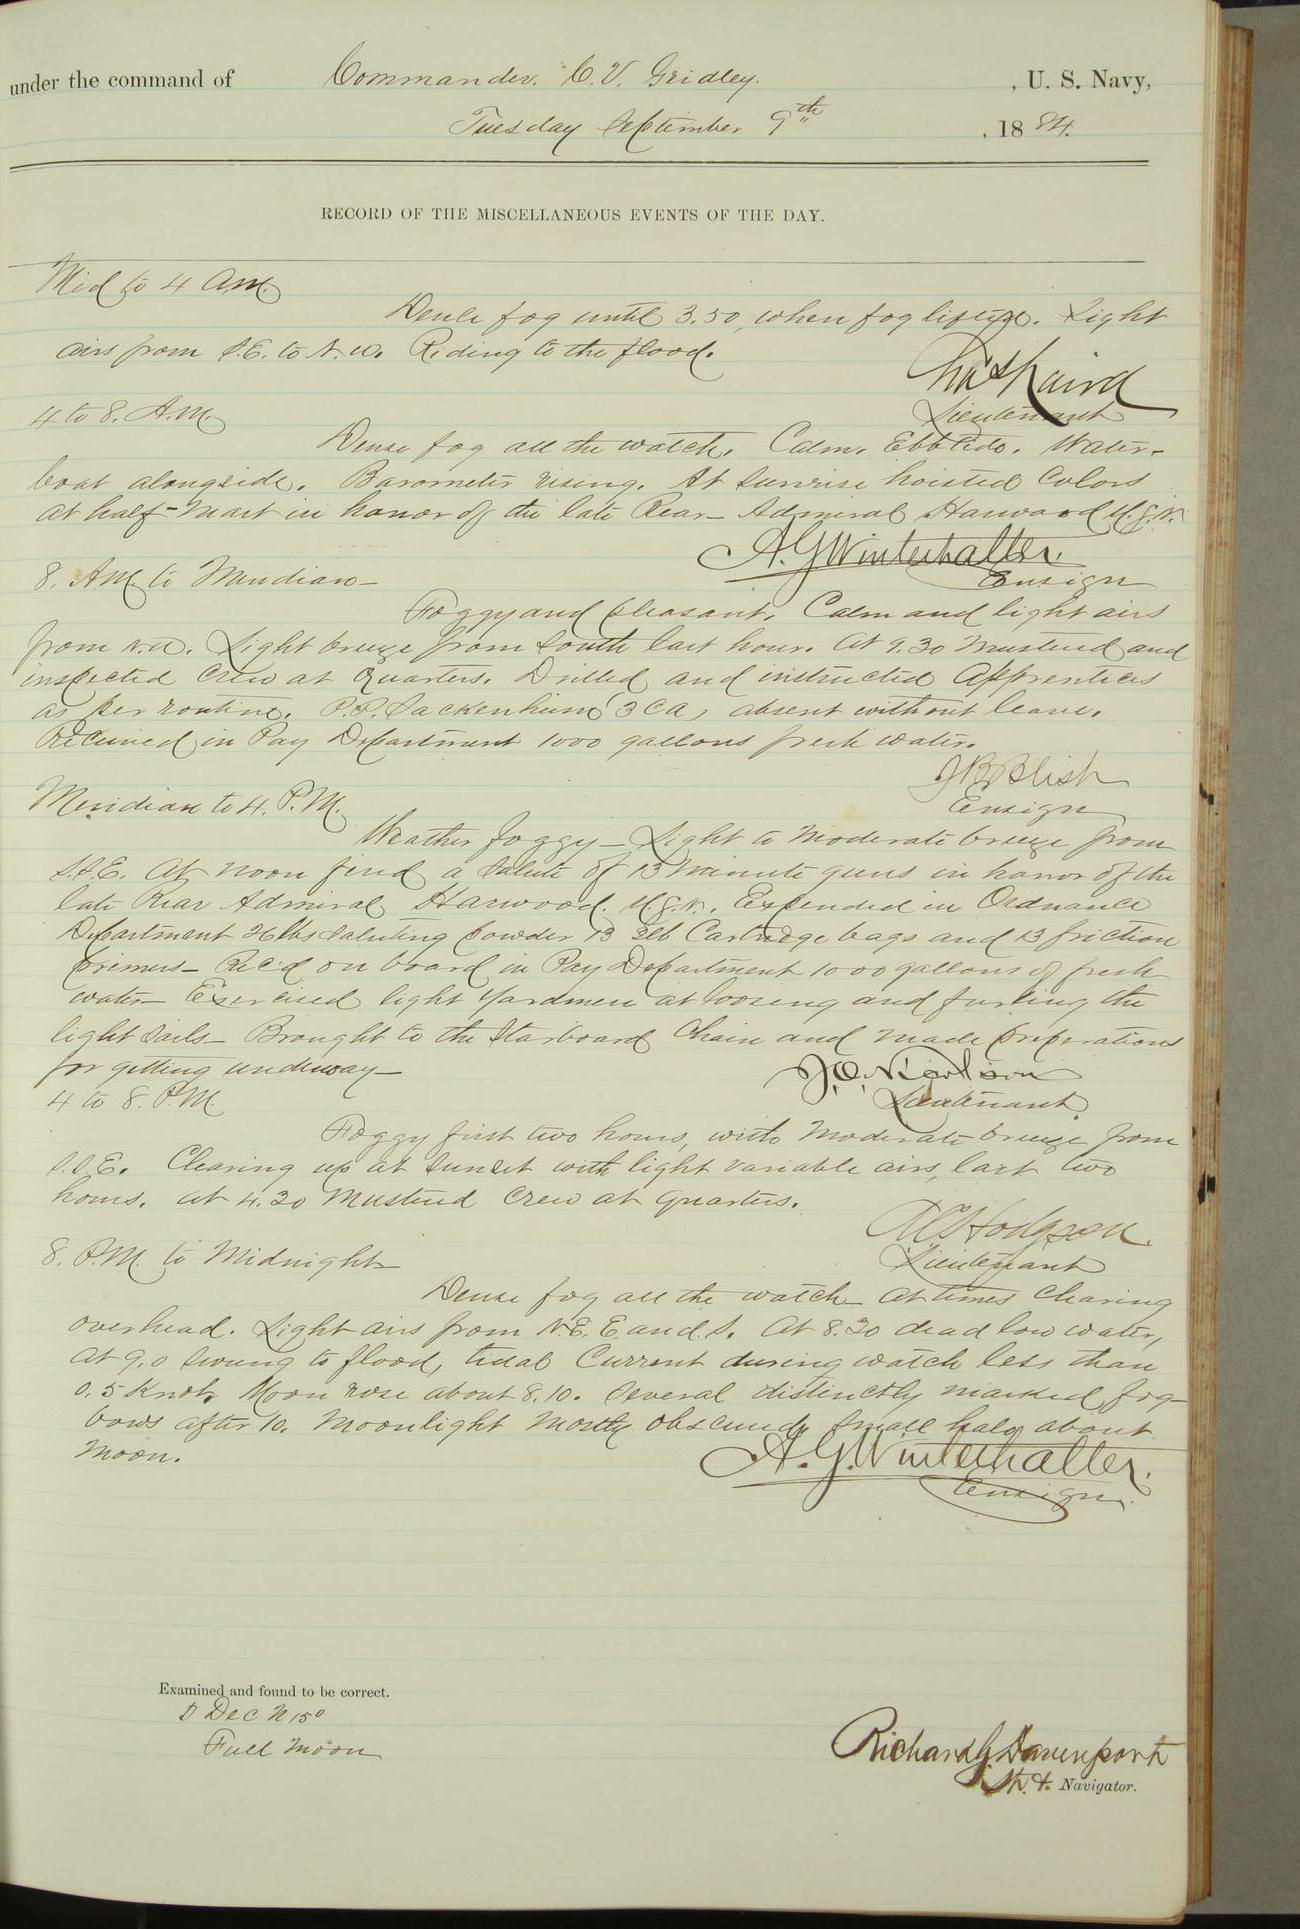 under the command of Commander. C. V. Gridley. , U. S. Navy,
Tuesday September 9th , 1884.
RECORD OF THE MISCELLANEOUS EVENTS OF THE DAY.
Mid to 4 A.M.
Dense fog until 3.50, when fog lifted. Light
airs from S.E. to N.W. Riding to the flood.
Lieutenant
4 to 8. A.M.
Dense fog all the watch. Calm. Ebb tide. Water-
boat alongside. Barometer rising. At sunrise hoisted Colors
at half-mast in honor of the late Rear-Admiral Harwood U.S.N.
A.G. Winterhalter.
Ensign
8. A.M. to Meridian-
Foggy and pleasant. Calm and light airs
from N.W. Light breeze from South last hour. At 9.30 mustered and
inspected crew at quarters. Drilled and instructed Apprentices
as per routine. absent without leave.
Received in Pay Department 1000 gallons fresh water.
J B Blish
Ensign
Meridian to 4. P.M.
Weather foggy- Light to moderate breeze from
S.S.E. At noon fired a salute of 13 minute guns in honor of the
late Rear Admiral Harwood. U.S.N. Expended in Ordnance
Department 26 lbs saluting powder 13 2lb Cartridge bags and 13 friction
primers- Rec'd on board in Pay Department 1000 gallons of fresh
water- Exercised light yardmen at loosing and furling the
light sails- Brought to the Starboard Chain and made preparations
for getting underway-
Lieutenant.
4 to 8. P.M.
Foggy first two hours, with moderate breeze from
S.S.E. Clearing up at sunset with light variable airs, last two
hours. At 4.30 mustered crew at quarters.
Hodgson.
Lieutenant
8. P.M. to Midnight-
Dense fog all the watch- at times clearing
overhead. Light airs from N.E. E. and S. At 8.30 dead low water,
at 9.0 swung to flood, tidal current during watch less than
0.5 Knot. Moon rose about 8.10. Several distinctly marked fog-
bows after 10. Moonlight mostly obscured, small halo about
moon.
A.G. Winterhalter.
Ensign.
Examined and found to be correct.
D Dec N 15°
Full Moon
Richard G Davenport
Navigator.